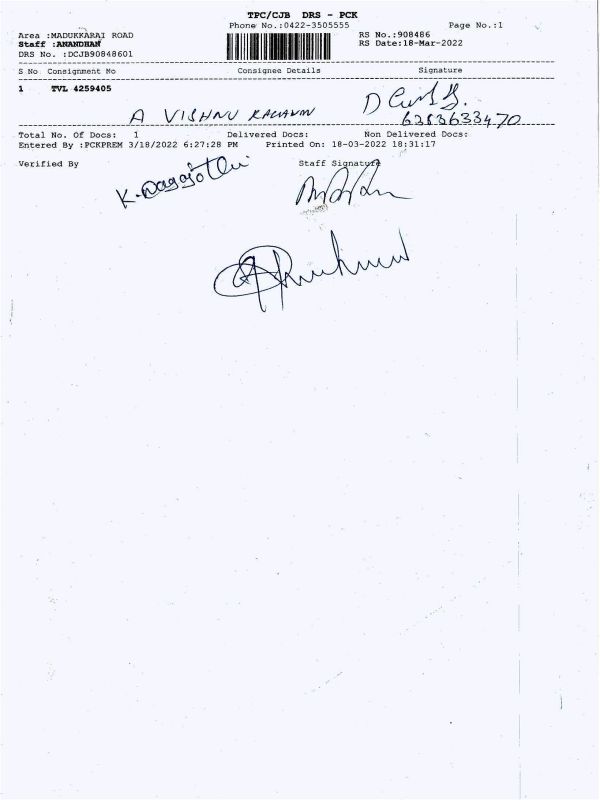 TPC/CJB DRS - PCK
Phone No.:0422-3505555 Page No.:1
Area :MADUKKARAI ROAD RS No.:908486
Staff :ANANDHAN RS Date:18-Mar-2022
DRS No. :DCJB90848601
S No Consignment No Consignee Details Signature
1 TVL 4259405
A VISHNU
6283633470
Total No. Of Docs: 1 Delivered Docs: Non Delivered Docs:
Entered By :PCKPREM 3/18/2022 6:27:28 PM Printed On: 18-03-2022 18:31:17
Verified By Staff Signature
K.